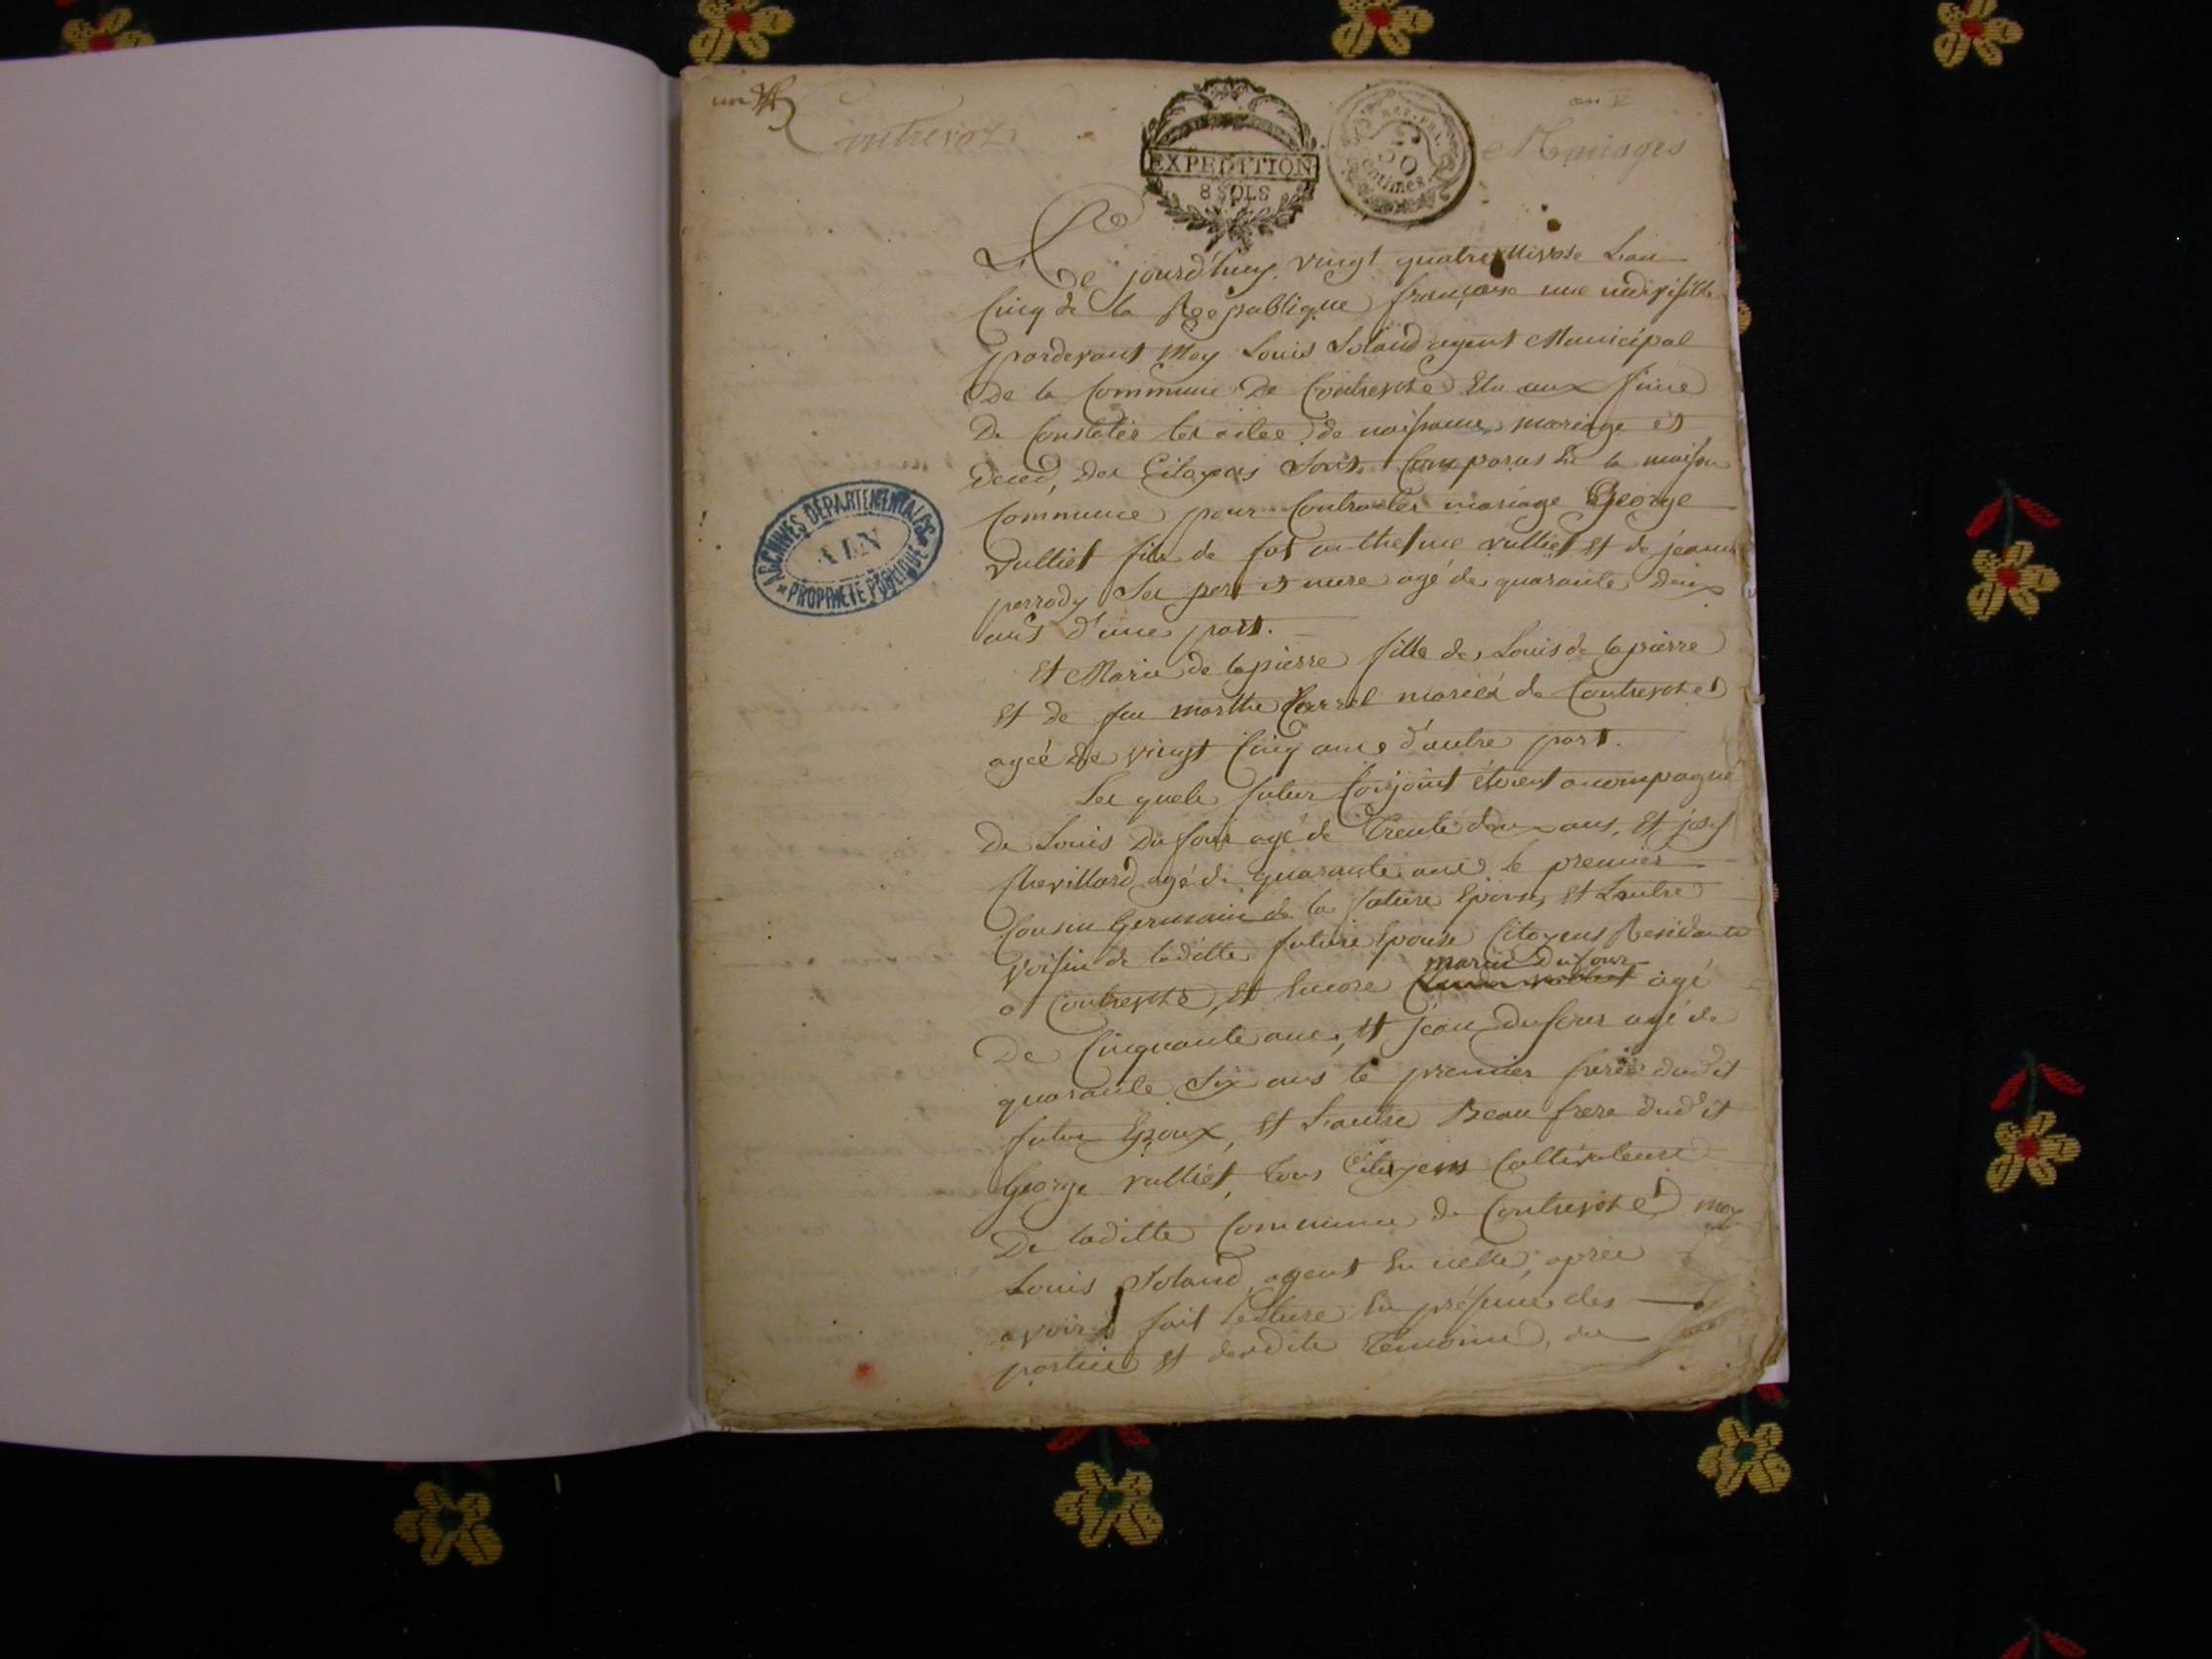 an V
Contrevoz
Mariages
EXPEDITION
8 SOLS
REP. FRA.
50
centimes
ARCHIVES DÉPARTEMENTALES
AIN
PROPRIÉTÉ PUBLIQUE
Ce jourd'huy vingt quatre nivose L'an
Cinq de la Republique française une indivisible
pardevant Moy Louis Soland agent Municipal
De la Commune De Contrevoz Elu aux fins
De Constater les actes de naissance mariage et
deced, des Citoyens Sont Comparus En la maison
Commune pour Contracter mariage George
vulliet fils de anthelme vulliet Et de jeanne
perrody Ses pere et mere agé de quarante deux
ans d'une part.
Et Marie de lapierre fille de Louis de lapierre
Et de feu marthe mariés de Contrevoz
ageé de vingt Cinq ans d'autre part.
Les quels futur Conjoint étoient acompagné
De Louis Dufour agé de Trente deux ans, Et josef
Chevillard agé de quarante ans le premier
Cousin Germain de la future Epouse, Et Lautre
voisin de laditte future Epouse Citoyens Residants
a Contrevoz, Et Encore marin Dufour agé
De Cinquante ans, Et jean Dufour agé de
quarante Six ans le premier frere dudit
futur Epoux, Et L'autre Beau frere dudit
George vulliet, tous Citoyens Cultivateurs
De laditte Commune de Contrevoz moy
Louis Soland agent En icelle, après
avoir fait Lecture En présence des
parties Et desdits Témoins, de